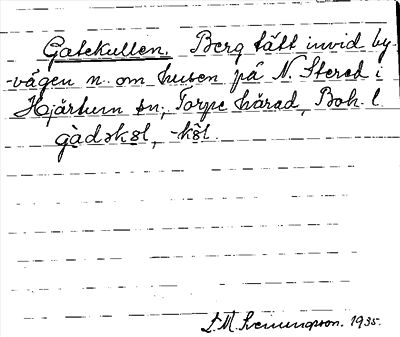 Gatekullen. Berg tätt invid by-
-vägen n. om husen på N. Stered i
Hjärtum sn, Torpe härad, Boh. l.
gàdəkəl, -kəl.
1935.